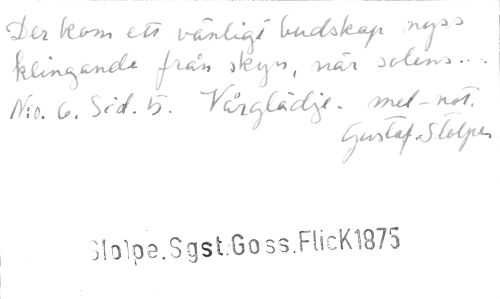 Der kom ett vänligt budskap nyss
klingande från skyn, när solens...
No. 6. Sid. 5. Vårglädje. mel-not.
Gustaf Stolpe
Stolpe.Sgst.Goss.FlicK1875